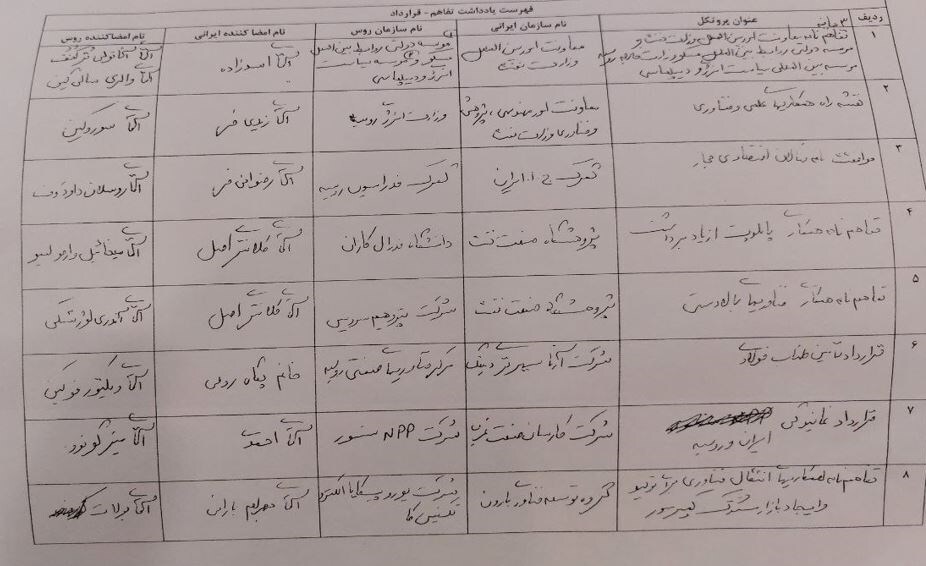 فهرست یادداشت تفاهم - قرارداد
ردیف
عنوان پروتکل
نام سازمان ایرانی
نام سازمان روس
نام امضا کننده ایرانی
نام امضاکننده روس
۱
تفاهم نامه معاونت امور بین الملل وزارت نفت و
موسسه دولتی روابط بین الملل مسکو وزارت خارجه روسیه
موسسه بین المللی سیاست انرژی و دیپلماسی
معاونت امور بین الملل
وزارت نفت
موسسه دولتی روابط بین الملل
مسکو و موسسه سیاست
انرژی و دیپلماسی
آقای اسدزاده
آقای
آقای والری سالی گین
۲
نقشه راه همکاریهای علمی و فناوری
معاونت امور مهندسی، پژوهش
و فناوری وزارت نفت
وزارت انرژی روسیه
آقای زیدی فر
آقای سوروکین
۳
موافقت نامه فعالان اقتصادی مجاز
گمرک ج.ا.ایران
گمرک فدراسیون روسیه
آقای رضوانی فر
آقای روسلان داویدوف
۴
تفاهم نامه همکاری پایلوت ازدیاد برداشت
پژوهشگاه صنعت نفت
دانشگاه فدرال کازان
آقای کلانتر اصل
آقای میخائیل وارفولومیو
۵
تفاهم نامه همکاری فناوریهای بالادستی
پژوهشگاه صنعت نفت
شرکت پتروهیم سرویس
آقای کلانتر اصل
آقای
۶
قرارداد تأمین طناب فولادی
شرکت آریا سپهر
مرکز فناوریهای صنعتی روسیه
خانم پگاه
آقای ویکتور فوکین
۷
قرارداد نمایندگی
ایران و روسیه
شرکت کارسان صنعت غرب
شرکت NPP سنسور
آقای احمدی
آقای
۸
تفاهم نامه همکاریهای انتقال فناوری برای تولید
و ایجاد بازار مشترک کمپرسور
گروه توسعه فناور بارون
شرکت
آقای بهرام بارانی
آقای